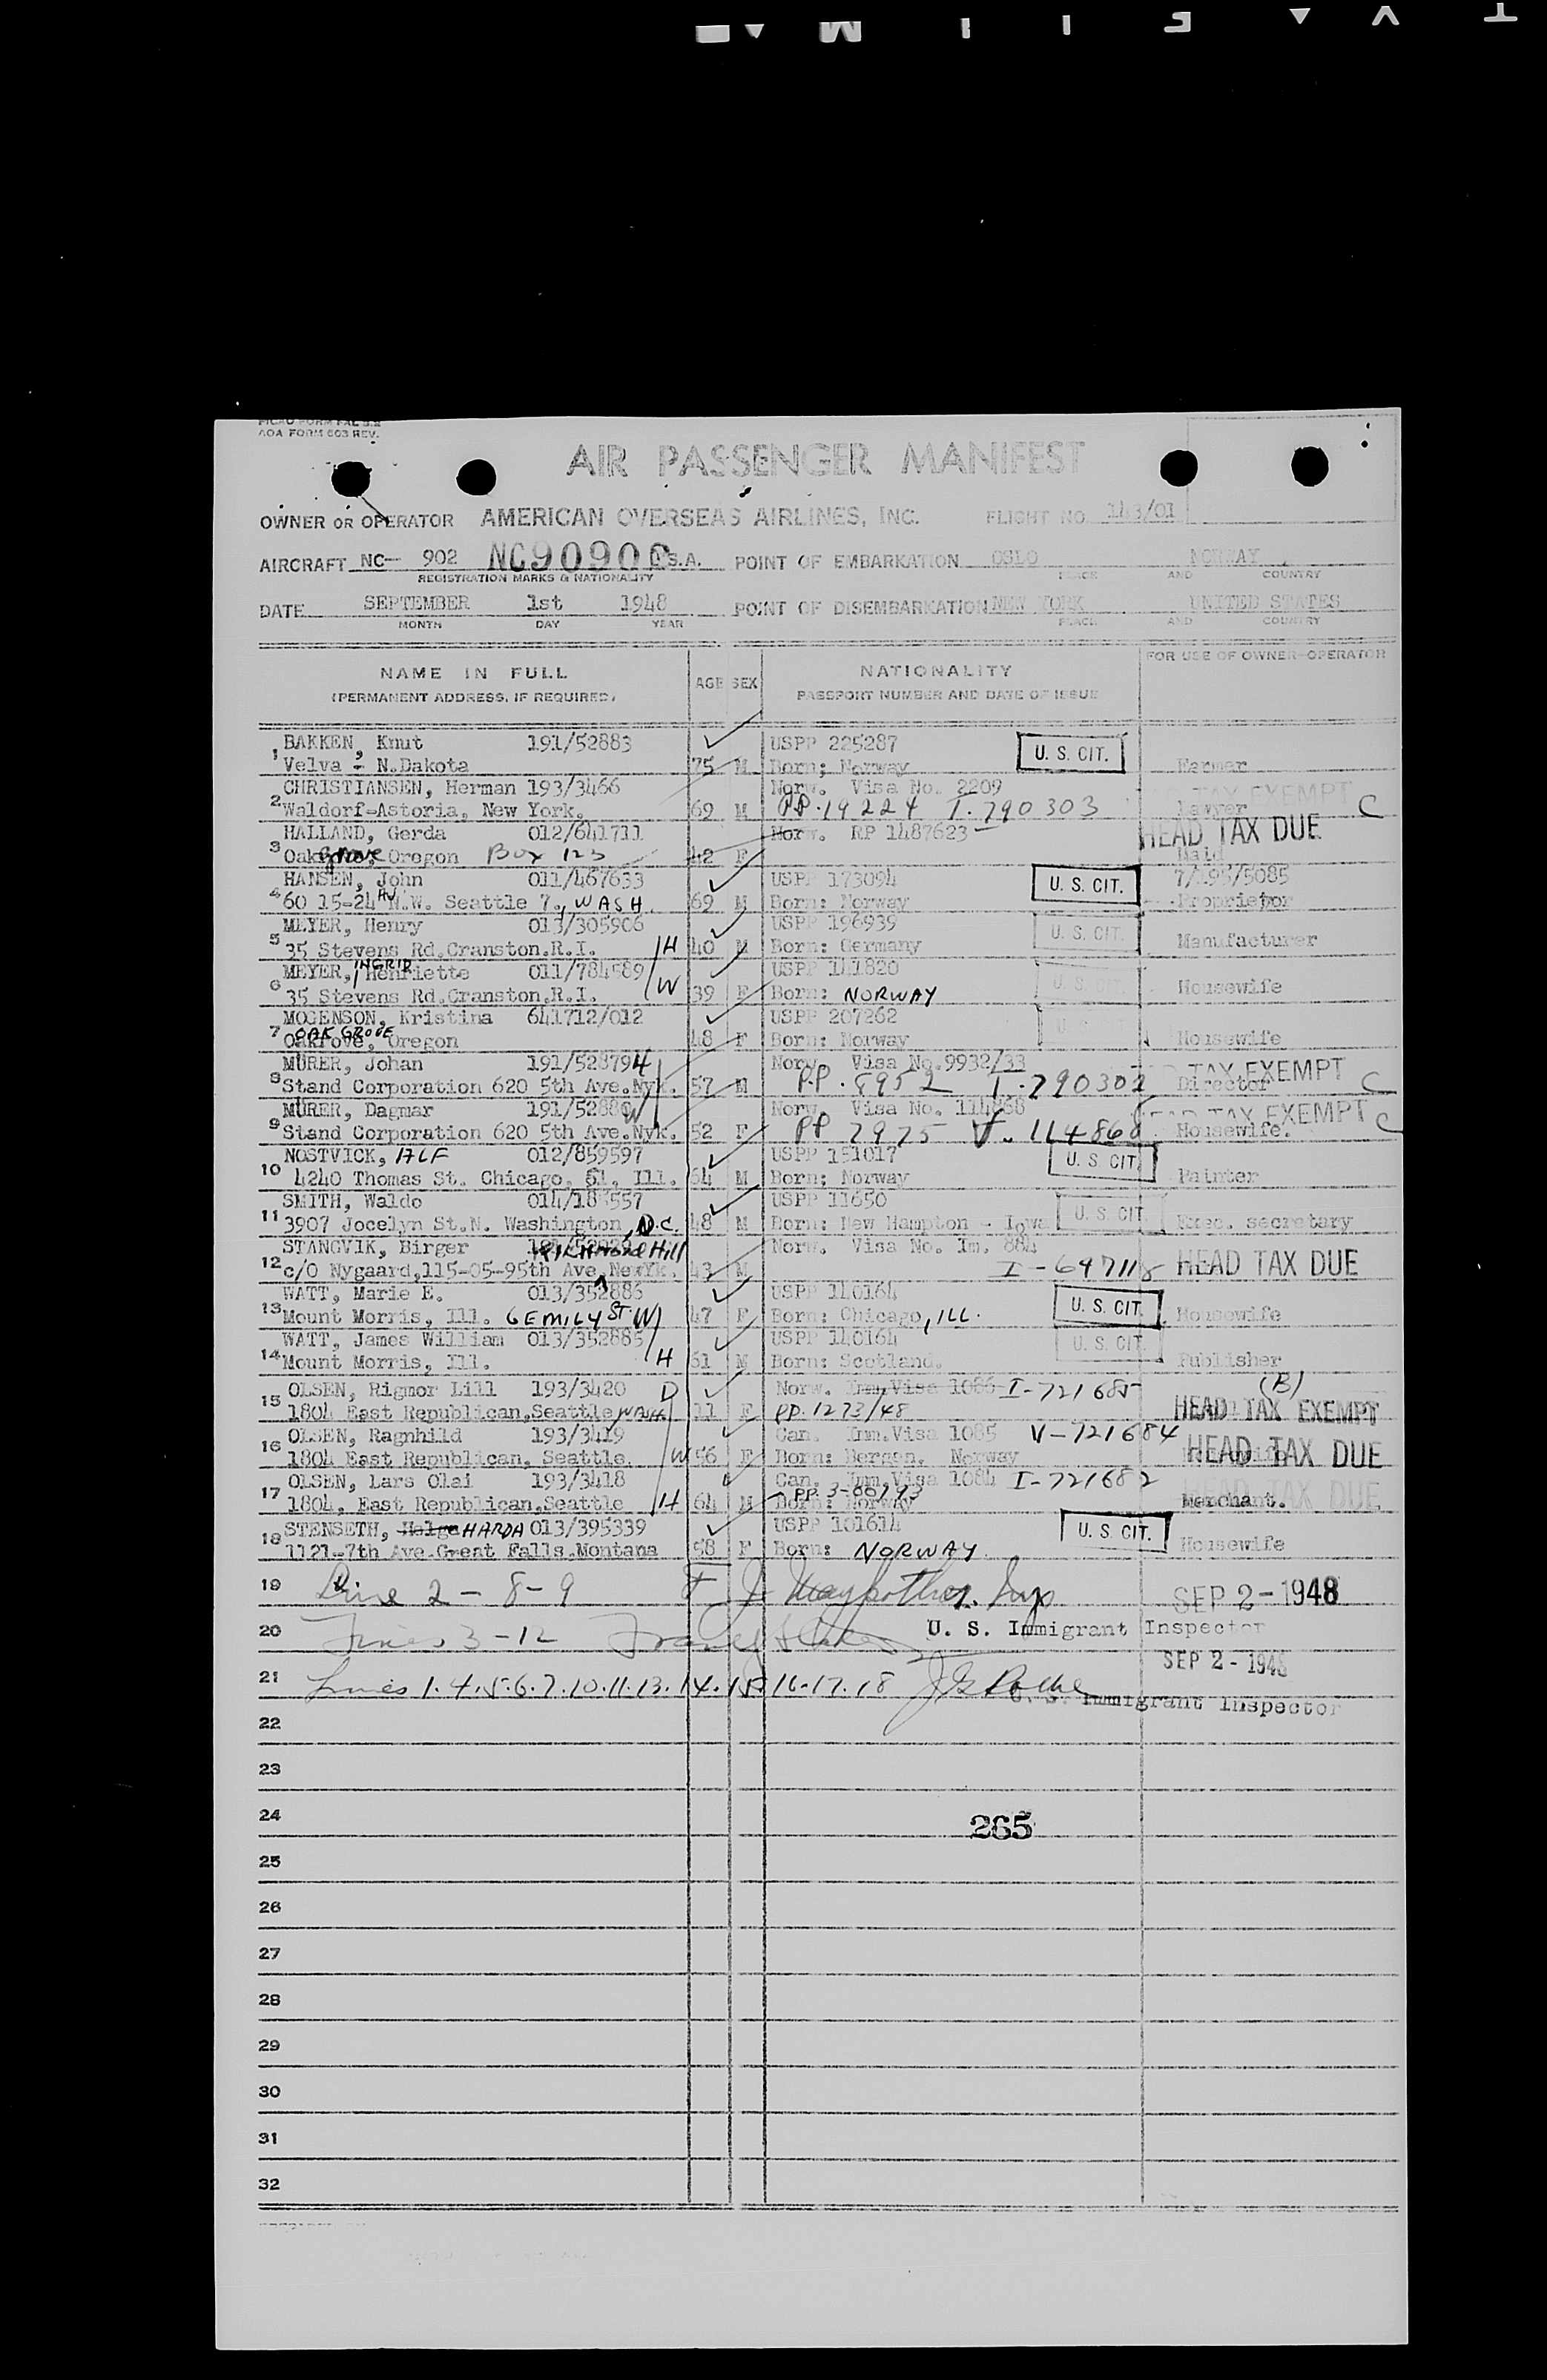 AOA FORM 603 REV.
AIR PASSENGER MANIFEST
OWNER OR OPERATOR AMERICAN OVERSEAS AIRLINES, INC. FLIGHT NO. 143/01
AIRCRAFT NC- 902 NC90902 U.S.A. POINT OF EMBARKATION OSLO NORWAY
REGISTRATION MARKS & NATIONALITY PLACE AND COUNTRY
DATE SEPTEMBER 1st 1948 POINT OF DISEMBARKATION NEW YORK UNITED STATES
MONTH DAY YEAR PLACE AND COUNTRY
NAME IN FULL AGE SEX NATIONALITY FOR USE OF OWNER-OPERATOR
(PERMANENT ADDRESS, IF REQUIRED) PASSPORT NUMBER AND DATE OF ISSUE
BAKKEN, Knut 191/52883 USPP 225287 U. S. CIT.
1 Velva - N.Dakota 75 M Born; Norway Farmer
CHRISTIANSEN, Herman 193/3466 Norw. Visa No. 2209 TAX EXEMPT
2 Waldorf-Astoria, New York. 69 M PP. 19224 I. 790303 Lawyer C
HALLAND, Gerda 012/641711 Norw. RP 1487623 HEAD TAX DUE
3 Oakgrove, Oregon Box 123 42 F Maid
HANSEN, John 011/467633 USPP 173094 U. S. CIT. 7/195/5085
4 60 15-24 AV N.W. Seattle 7., WASH. 69 M Born: Norway Proprietor
MEYER, Henry 013/305906 USPP 196939 U. S. CIT.
5 35 Stevens Rd.Cranston.R.I. H 40 M Born: Germany Manufacturer
MEYER, INGRID Henriette 011/784589 USPP 141820 U. S. CIT.
6 35 Stevens Rd.Cranston.R.I. W 39 F Born: NORWAY Housewife
MOGENSON, Kristina 641712/012 USPP 207262 U. S.
7 OAK GROVE Oakrove, Oregon 48 F Born: Norway Housewife
MURER, Johan 191/52879 H Norw. Visa No.9932/33 TAX EXEMPT
8 Stand Corporation 620 5th Ave.Nyk. 57 M P.P. 8952 I. 790302 Director C
MURER, Dagmar 191/52880 W Norw. Visa No. 114868 HEAD TAX EXEMPT
9 Stand Corporation 620 5th Ave.Nyk. 52 F PP 7975 V. 114868 Housewife. C
NOSTVICK, ALF 012/859597 USPP 151017 U. S. CIT.
10 4240 Thomas St. Chicago, 51, Ill. 64 M Born; Norway Painter
SMITH, Waldo 014/18 557 USPP 11650 U. S. CIT.
11 3907 Jocelyn St.N. Washington, D.C. 48 M Born: New Hampton - Iowa Exec. secretary
STANGVIK, Birger Richmond Hill Norw. Visa No. Im. 884
12 c/O Nygaard,115-05-95th Ave, NewYk. 43 M I-697118 HEAD TAX DUE
WATT, Marie E. 013/352886 USPP 140164 U. S. CIT.
13 Mount Morris, Ill. 6 EMILY ST. W 47 F Born: Chicago, ILL. Housewife
WATT, James William 013/352885 USPP 140164 U. S. CIT.
14 Mount Morris, Ill. H 61 M Born: Scotland. Publisher
OLSEN, Rigmor Lill 193/3420 D Norw. Imm.Visa 1086 I-721685 (B)
15 1804 East Republican,Seattle WASH 11 F PP. 1273/48 HEAD TAX EXEMPT
OLSEN, Ragnhild 193/3419 Can. Imm.Visa 1085 V-721684
16 1804 East Republican, Seattle. W 56 F Born: Bergen, Norway HEAD TAX DUE
OLSEN, Lars Olai 193/3418 Can. Imm.Visa 1084 I-721682
17 1804, East Republican,Seattle H 64 M PP. 3-00793 Born: Norway Merchant. HEAD TAX DUE
STENSETH, Helga HARDA 013/395339 USPP 101614 U. S. CIT.
18 1121-7th Ave.Great Falls.Montana 58 F Born: NORWAY Housewife
19 Line 2 - 8 - 9 SEP 2 - 1948
20 Lines 3 - 12 U. S. Immigrant Inspector
SEP 2 - 1948
21 Lines 1.4.5.6.7.10.11.13.14.15.16.17.18
U. S. Immigrant Inspector
22
23
24 265
25
26
27
28
29
30
31
32